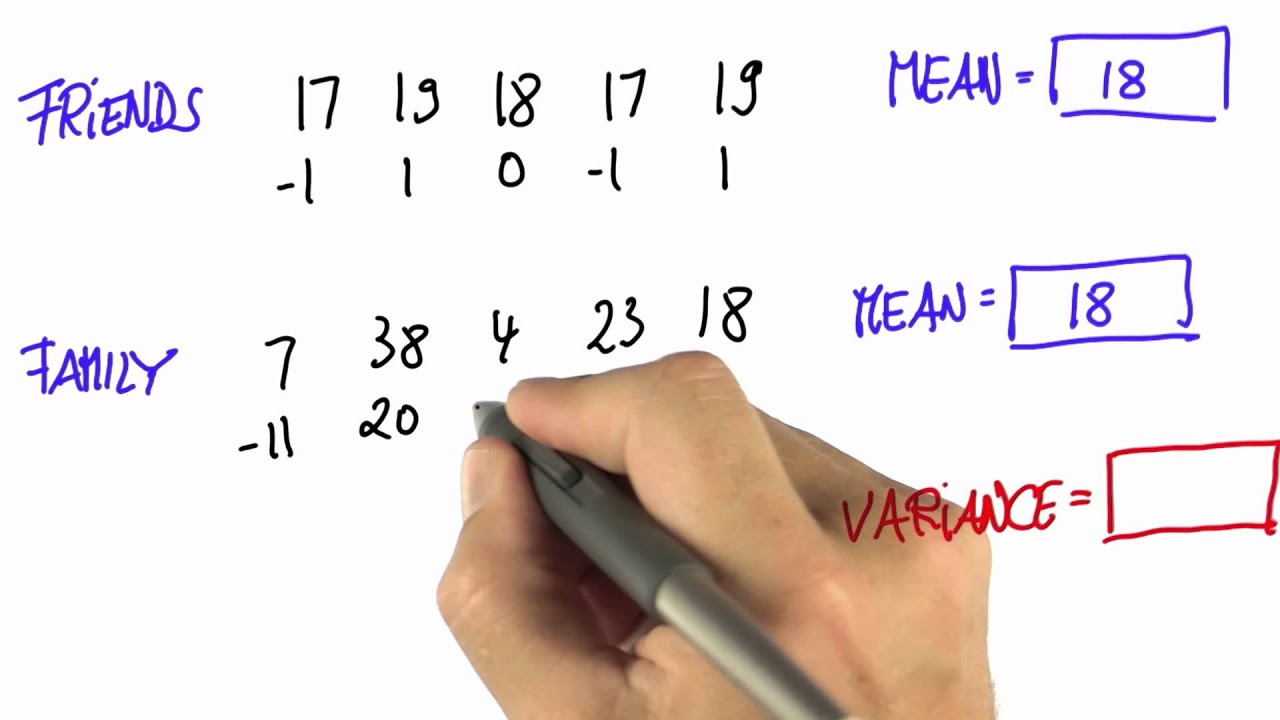 FRIENDS 17 19 18 17 19 MEAN = 18
-1 1 0 -1 1
FAMILY 7 38 4 23 18 MEAN = 18
-11 20
VARIANCE =